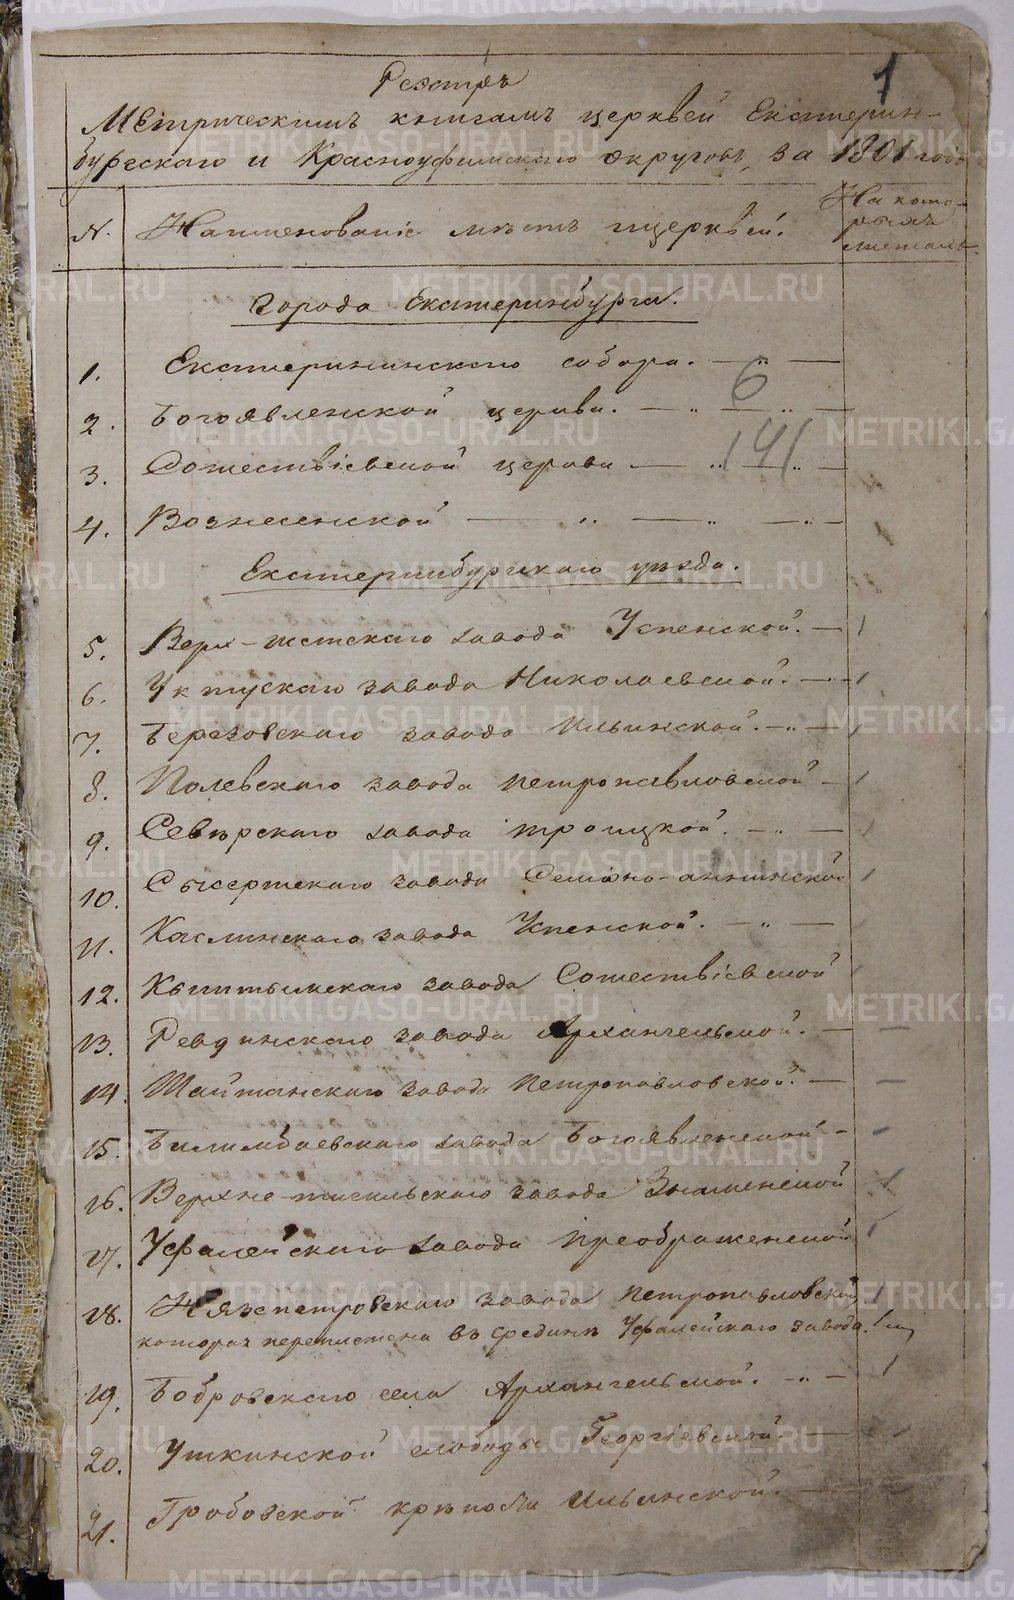 1
Реэстръ
Метрическимъ книгамъ церквей Екатерин-
бургскаго и Красноуфимскаго округовъ, за 1801 годъ
№. Наименованіе мѣстъ и церквей. На кото-
рыхъ
листахъ
Города Екатеринбурга.
1. Екатерининскаго собора. — „ —
6
2. Богоявленской церкви. — „ — „ —
141
3. Сошествіевской церкви — „ — „ —
4. Вознесенской — „ — „ — „ —
Екатеринбургскаго уѣзда.
5. Верх-исетскаго завода Успенской. — 1
6. Уктускаго завода Николаевской. — 1
7. Березовскаго завода Ильинской. — „ — 1
8. Полевскаго завода Петропавловской — 1
9. Сѣверскаго завода Троицкой. — „ — 1
10. Сысертскаго завода Симеоно-аннинской 1
11. Каслинскаго завода Успенской. — „ —
12. Кыштымскаго завода Сошествіевской 1
13. Ревдинскаго завода Архангельской. — —
14. Шайтанскаго завода Петропавловской. — —
15. Билимбаевскаго завода Богоявленской. - -
16. Верхне-тагильскаго завода Знаменской 1
17. Уфалейскаго завода Преображенской 1
18. Нязепетровскаго завода Петропавловской 1
которая переплетена въ срединѣ Уфалейскаго завода.
19. Бобровскаго села Архангельской. - „ - 1
20. Уткинской слободы Георгіевской. —
21. Гробовской крѣпости Ильинской. —
METRIKI.GASO-URAL.RU